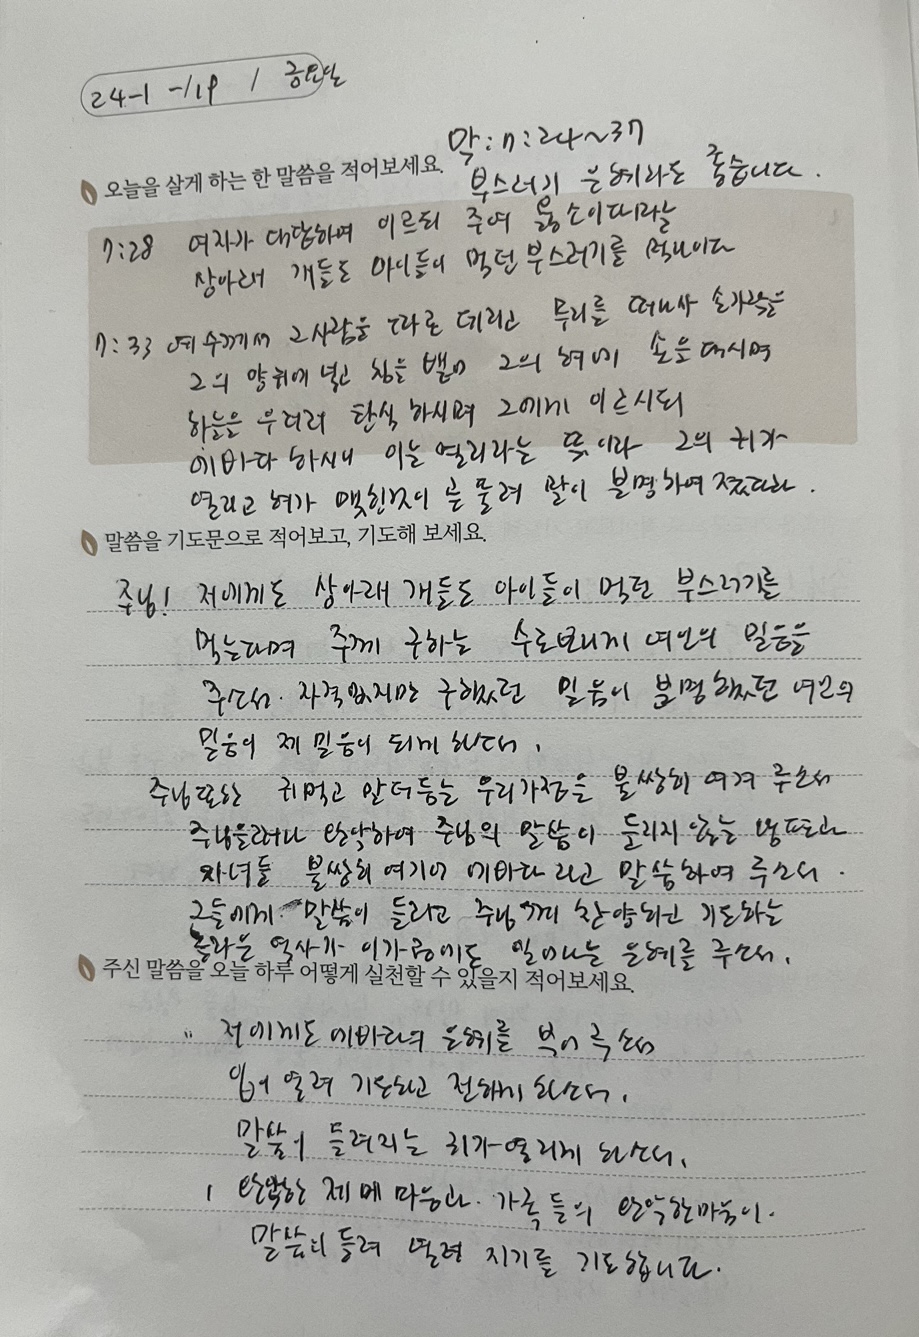 24-1-19 / 금요일
막:7:24~37
오늘을 살게 하는 한 말씀을 적어보세요.
부스러기 은혜라도 좋습니다.
7:28 여자가 대답하여 이르되 주여 옳소이다마는
상아래 개들도 아이들이 먹던 부스러기를 먹나이다
7:33 예수께서 그사람을 따로 데리고 무리를 떠나사 손가락을
그의 양귀에 넣고 침을 뱉어 그의 혀에 손을 대시며
하늘을 우러러 탄식 하시며 그에게 이르시되
에바다 하시니 이는 열리라는 뜻이라 그의 귀가
열리고 혀가 맺힌것이 곧 풀려 말이 분명하여 졌더라.
말씀을 기도문으로 적어보고, 기도해 보세요.
주님! 저에게도 상아래 개들도 아이들이 먹던 부스러기를
먹는다며 주께 구하는 수로보니게 여인의 믿음을
주소서. 자격없지만 구했던 믿음이 분명했던 여인의
믿음이 제 믿음이 되게 하소서.
주님또한 귀먹고 말더듬는 우리가정을 불쌍히 여겨 주소서
주님을떠나 완악하여 주님의 말씀이 들리지 않는 남편과
자녀들 불쌍히 여기어 에바다 라고 말씀하여 주소서.
그들에게 말씀이 들리고 주님께 찬양하고 기도하는
놀라운 역사가 이가정에도 일어나는 은혜를 주소서.
주신 말씀을 오늘 하루 어떻게 실천할 수 있을지 적어보세요.
" 저에게도 에바다의 은혜를 부어 주소서
입이 열려 기도하고 전하게 하소서.
말씀이 들려지는 귀가열리게 하소서.
완악한 제 마음과. 가족들의 완악한마음이.
말씀이 들려 열려 지기를 기도합니다.